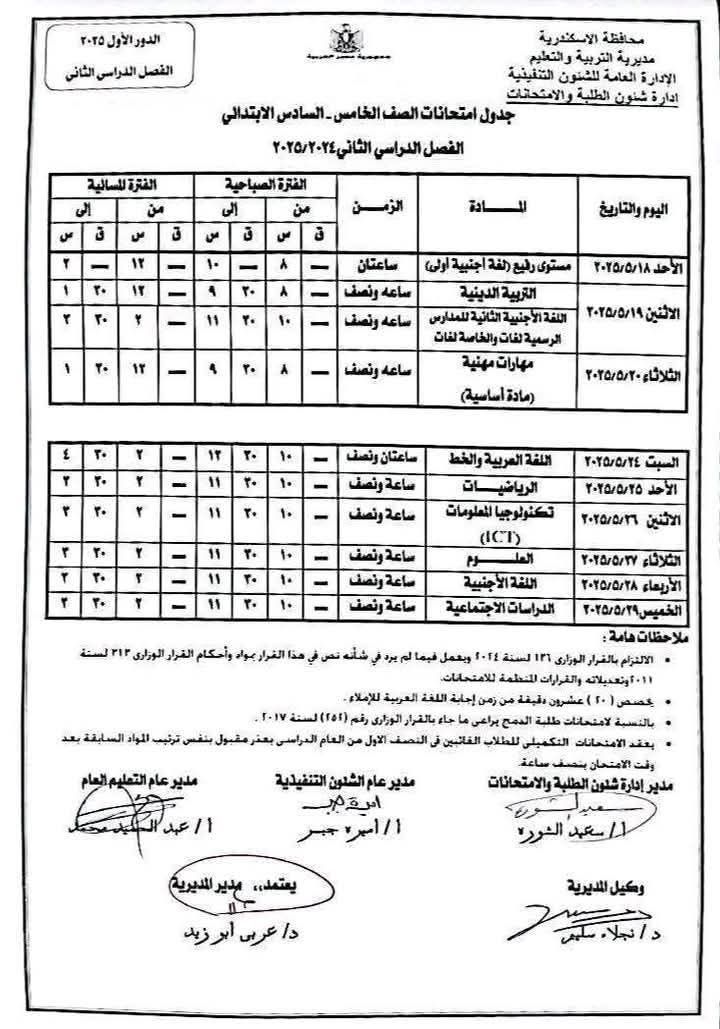 محافظة الإسكندرية
مديرية التربية والتعليم
الإدارة العامة للشئون التنفيذية
إدارة شئون الطلبة والامتحانات
جمهورية مصر العربية
الدور الأول ٢٠٢٥
الفصل الدراسي الثاني
جدول امتحانات الصف الخامس - السادس الابتدائي
الفصل الدراسي الثاني ٢٠٢٥/٢٠٢٤
اليوم والتاريخ المــادة الزمــن الفترة الصباحية الفترة المسائية
من إلى من إلى
ق س ق س ق س ق س
الأحد ٢٠٢٥/٥/١٨ مستوى رفيع (لغة أجنبية أولى) ساعتان — ٨ — ١٠ — ١٢ — ٢
الاثنين ٢٠٢٥/٥/١٩ التربية الدينية ساعه ونصف — ٨ ٣٠ ٩ — ١٢ ٣٠ ١
اللغة الأجنبية الثانية للمدارس الرسمية لغات والخاصة لغات ساعه ونصف — ١٠ ٣٠ ١١ — ٢ ٣٠ ٣
الثلاثاء ٢٠٢٥/٥/٢٠ مهارات مهنية (مادة أساسية) ساعه ونصف — ٨ ٣٠ ٩ — ١٢ ٣٠ ١
السبت ٢٠٢٥/٥/٢٤ اللغة العربية والخط ساعتان ونصف — ١٠ ٣٠ ١٢ — ٢ ٣٠ ٤
الأحد ٢٠٢٥/٥/٢٥ الرياضيــات ساعة ونصف — ١٠ ٣٠ ١١ — ٢ ٣٠ ٣
الاثنين ٢٠٢٥/٥/٢٦ تكنولوجيا المعلومات (ICT) ساعة ونصف — ١٠ ٣٠ ١١ — ٢ ٣٠ ٣
الثلاثاء ٢٠٢٥/٥/٢٧ العلـــوم ساعة ونصف — ١٠ ٣٠ ١١ — ٢ ٣٠ ٣
الأربعاء ٢٠٢٥/٥/٢٨ اللغة الأجنبية ساعة ونصف — ١٠ ٣٠ ١١ — ٢ ٣٠ ٣
الخميس ٢٠٢٥/٥/٢٩ الدراسات الاجتماعية ساعة ونصف — ١٠ ٣٠ ١١ — ٢ ٣٠ ٣
ملاحظات هامة :
• الالتزام بالقرار الوزارى ١٣٦ لسنة ٢٠٢٤ ويعمل فيما لم يرد في شأنه نص في هذا القرار بمواد وأحكام القرار الوزارى ٣١٣ لسنة
٢٠١١ وتعديلاته والقرارات المنظمة للامتحانات.
• يخصص (٢٠) عشرون دقيقة من زمن إجابة اللغة العربية للإملاء .
• بالنسبة لامتحانات طلبة الدمج يراعى ما جاء بالقرار الوزارى رقم (٢٥٢) لسنة ٢٠١٧ .
• يعقد الامتحانات التكميلى للطلاب الغائبين فى النصف الاول من العام الدراسى بعذر مقبول بنفس ترتيب المواد السابقة بعد
وقت الامتحان بنصف ساعة.
مدير إدارة شئون الطلبة والامتحانات مدير عام الشئون التنفيذية مدير عام التعليم العام
أ/ سعيد الشورة أ/ أميرة جبر أ/ عبد الحميد محمد
وكيل المديرية يعتمد،، مدير المديرية
د/ نجلاء سليم د/ عربى أبو زيد